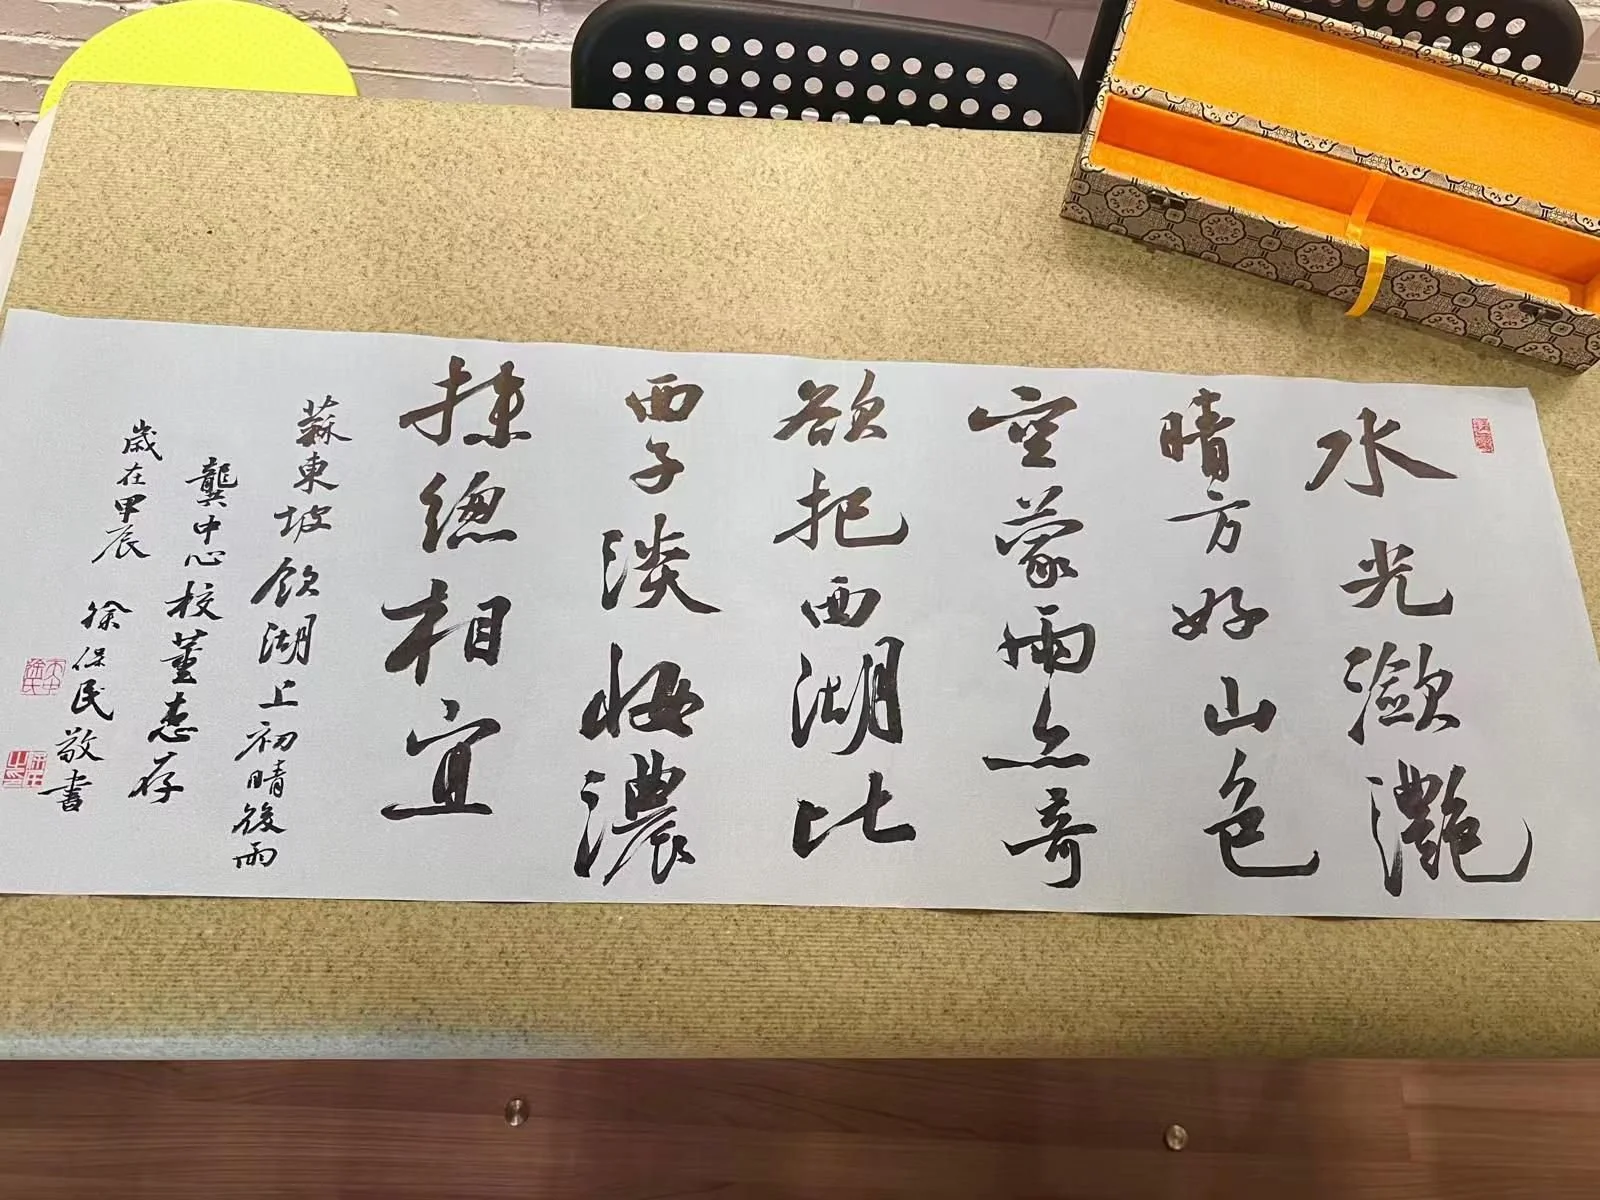 水光瀲灧
晴方好山色
空蒙雨亦奇
欲把西湖比
西子淡妝濃
抹總相宜
蘇東坡飲湖上初晴後雨
龔中心校董惠存
歲在甲辰 徐保民敬書